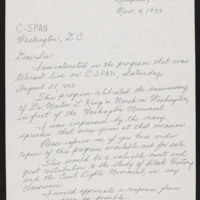 Nov. 4, 1993
C-SPAN
Washington, D.C.
Dear Sir:
I am interested in the program that was
telecast live on C-SPAN, Saturday,
August 28, 1993.
This program celebrated the anniversary
of Dr. Martin L. King's March on Washington
in front of the Washington Monument.
I was impressed by the many
speeches that were given at this occasion.
Please inform me if you have video
copies of this program available and for sale.
This would be a valuable asset and
great contribution to the study of Black History
and the Civil Rights Memorial, in my
classroom.
I would appreciate a response from